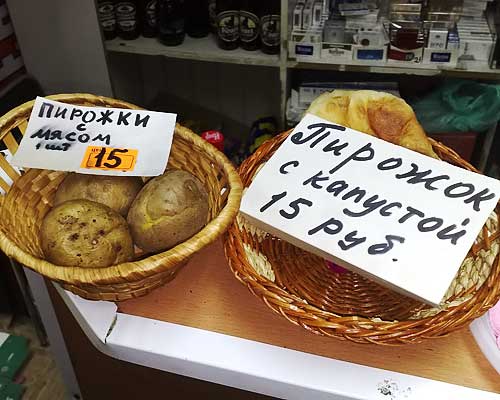 ПИРОЖКИ
с
мясом
1 шт 15
Пирожок
с капустой
15 руб.